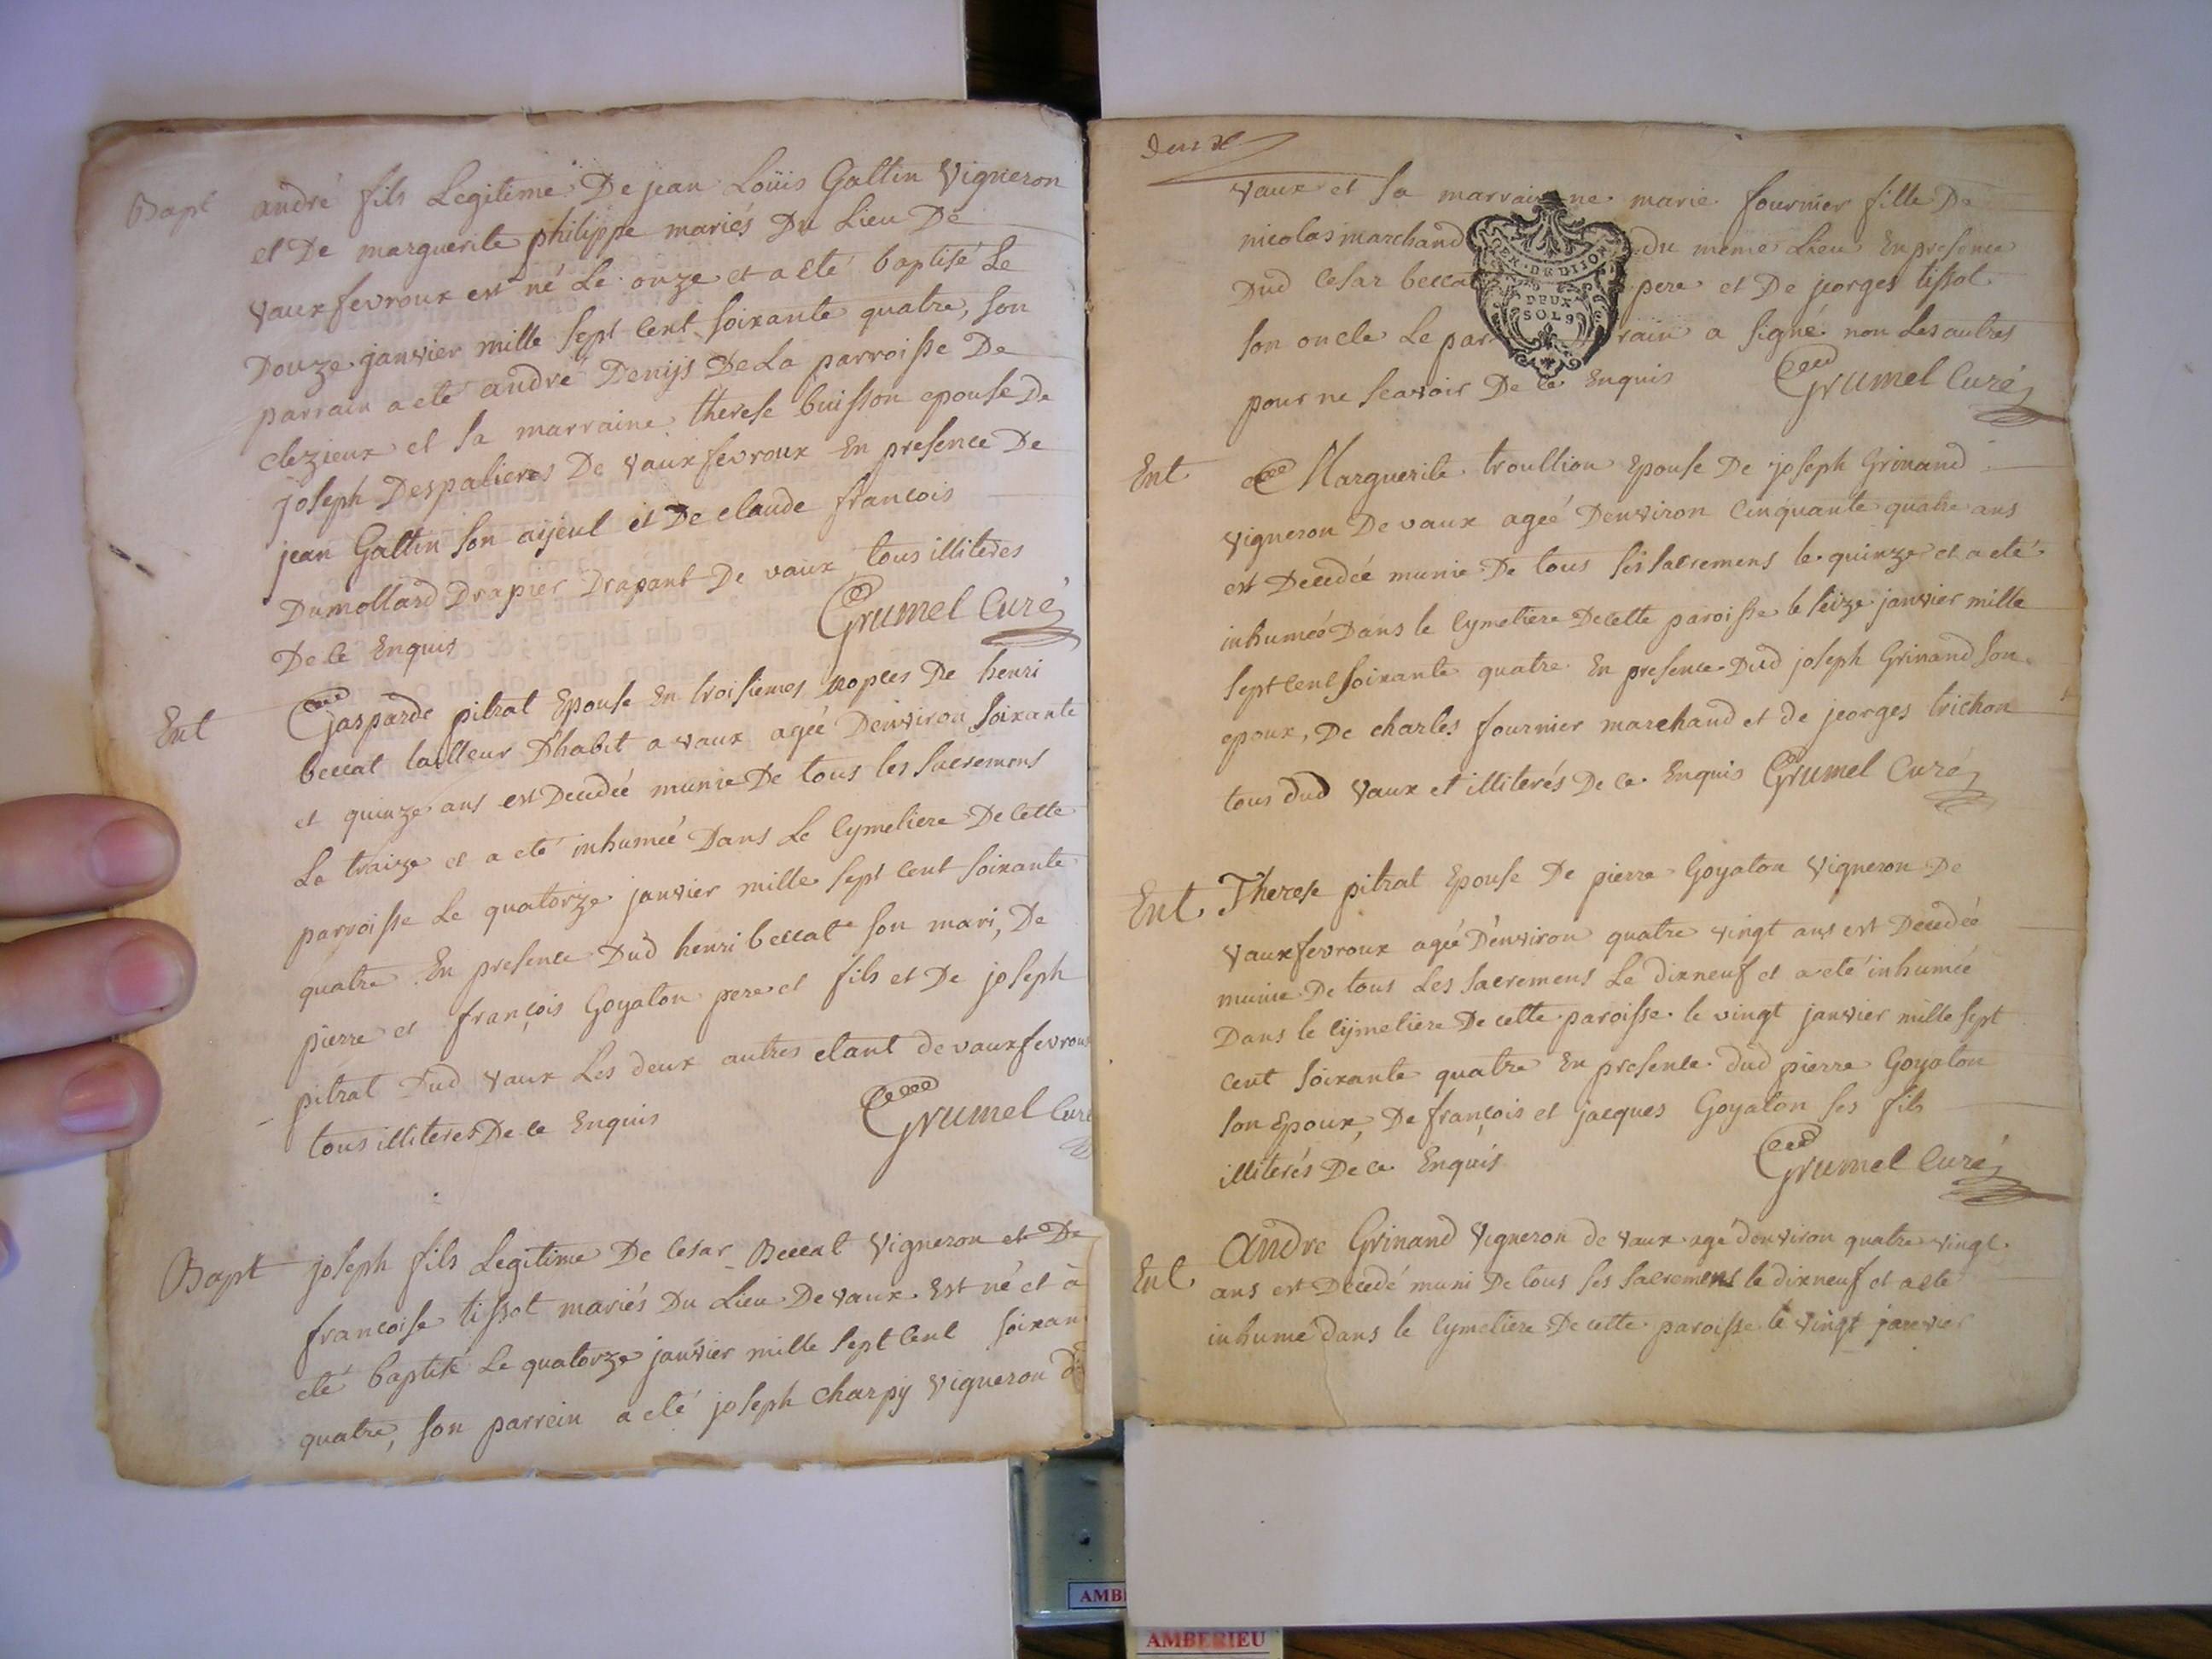 Bapt
andré fils Legitime De jean Loüis Gattin Vigneron
et De marguerite philippe mariés Du Lieu De
Vauxfevroux est né Le onze et a eté baptisé Le
Douze janvier mille sept cent soixante quatre, son
parrain a eté andré Denijs De La parroisse De
clezieux et sa marraine therese buisson epouse De
joseph Despalieres De Vauxfevroux En presence De
jean Gattin son aijeul et De claude francois
Dumollard Drapier Drapant De vaux tous illiteres
De ce Enquis
Grumel Curé
Ent
Gasparde pitrat Epouse En troisiemes nopces De henri
beccat tailleur D'habit a vaux ageé D'environ soixante
et quinze ans est Decedeé munie De tous les sacremens
Le traize et a eté inhumeé Dans Le Cymetiere De cette
parroisse Le quatorze janvier mille sept cent soixante
quatre En presence Dud henri beccat son mari, De
pierre et françois Goyaton pere et fils et De joseph
pitrat Dud Vaux Les deux autres etant de vauxfevroux
tous illiteres De ce Enquis
Grumel Curé
Bapt
joseph fils Legitime De Cesar Beccat Vigneron et De
francoise tissot mariés Du Lieu De Vaux Est né et à
eté baptisé Le quatorze janvier mille sept cent soixan
quatre, son parrein a eté joseph charpy Vigneron d
deux
Vaux et sa marraine marie fournier fille De
nicolas marchand du meme Lieu En presence
Dud Cesar beccat pere et De jeorges tissot
son oncle Le parrain a signé non Les autres
pour ne scavoir De ce Enquis
Grumel Curé
GEN·DE DIJON
DEUX
SOLS
Ent
Marguerite troullion Epouse De joseph Grinand
Vigneron De vaux ageé D'environ Cinquante quatre ans
est Decedeé munie De tous ses sacremens le quinze et a eté
inhumeé Dans le Cymetiere De cette paroisse le seize janvier mille
sept cent soixante quatre En presence Dud joseph Grinand son
epoux, De charles fournier marchand et de jeorges trichon
tous dud Vaux et illiterés De ce Enquis Grumel Curé
Ent
Therese pitrat Epouse De pierre Goyaton Vigneron De
Vauxfevroux ageé D'environ quatre vingt ans est Decedeé
munie De tous Les sacremens Le dixneuf et a eté inhumeé
Dans le Cijmetiere De cette paroisse le vingt janvier mille sept
cent soixante quatre En presence dud pierre Goyaton
son Epoux, De françois et jacques Goyaton ses fils
illiterés De ce Enquis
Grumel Curé
Ent
André Grinand Vigneron de Vaux agé d'environ quatre vingt
ans est Decedé muni De tous ses sacremens le dixneuf et a eté
inhumé dans le Cymetiere De cette paroisse le vingt janvier
AMB
AMBERIEU